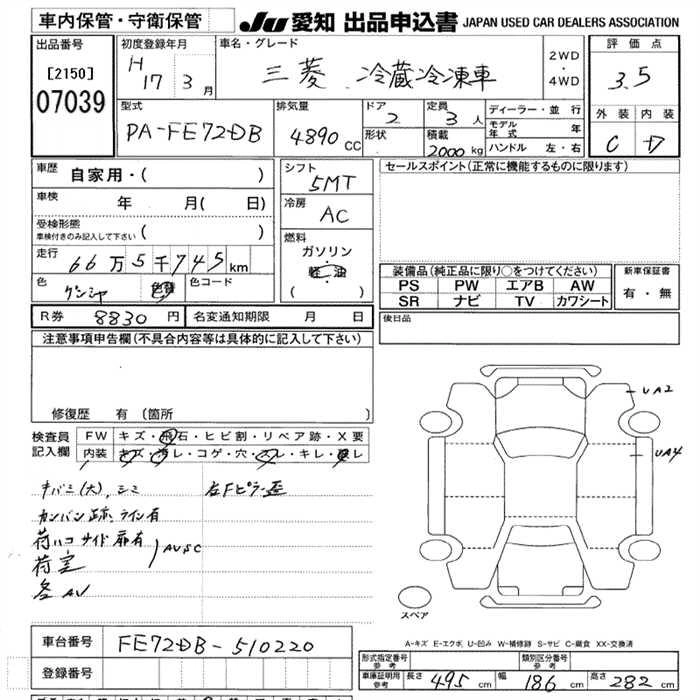 車内保管・守衛保管
JU 愛知 出品申込書 JAPAN USED CAR DEALERS ASSOCIATION
出品番号
[2150]
07039
初度登録年月
H 17 3月
車名・グレード
三菱 冷蔵冷凍車
2WD
・
4WD
評価点
3.5
外装 内装
C D
型式
PA-FE72DB
排気量
4890 CC
ドア
2
形状
定員
3人
積載
2000 kg
ディーラー・並行
モデル年式 年
ハンドル 左・右
車歴
自家用・( )
車検
年 月( 日)
受検形態
車検付きのみ記入して下さい ( )
走行
66万5千745km
色
ゲンシヤ
色コード
シフト
5MT
冷房
AC
燃料
ガソリン
軽油
( )
セールスポイント(正常に機能するものに限ります)
装備品(純正品に限り○をつけてください)
PS PW エアB AW
SR ナビ TV カワシート
新車保証書
有・無
R券 8830円 名変通知期限 月 日
後日品
注意事項申告欄(不具合内容等は具体的に記入して下さい)
修復歴 有 〔箇所 〕
検査員
記入欄
FW キズ・飛石・ヒビ割・リペア跡・X要
内装 キズ・汚レ・コゲ・穴・スレ・キレ・
キバミ(大)、シミ
左Fピラー歪
カンバン跡、ライン有
荷ハコ サイド扉有
荷室
AUSC
各 AU
UA2
UA4
スペア
A-キズ E-エクボ U-凹み W-補修跡 S-サビ C-腐食 XX-交換済
車台番号 FE72DB-510220
登録番号
形式指定番号
参考
類別区分番号
参考
車庫証明用
参考
長さ 495cm 幅 186cm 高さ 282cm